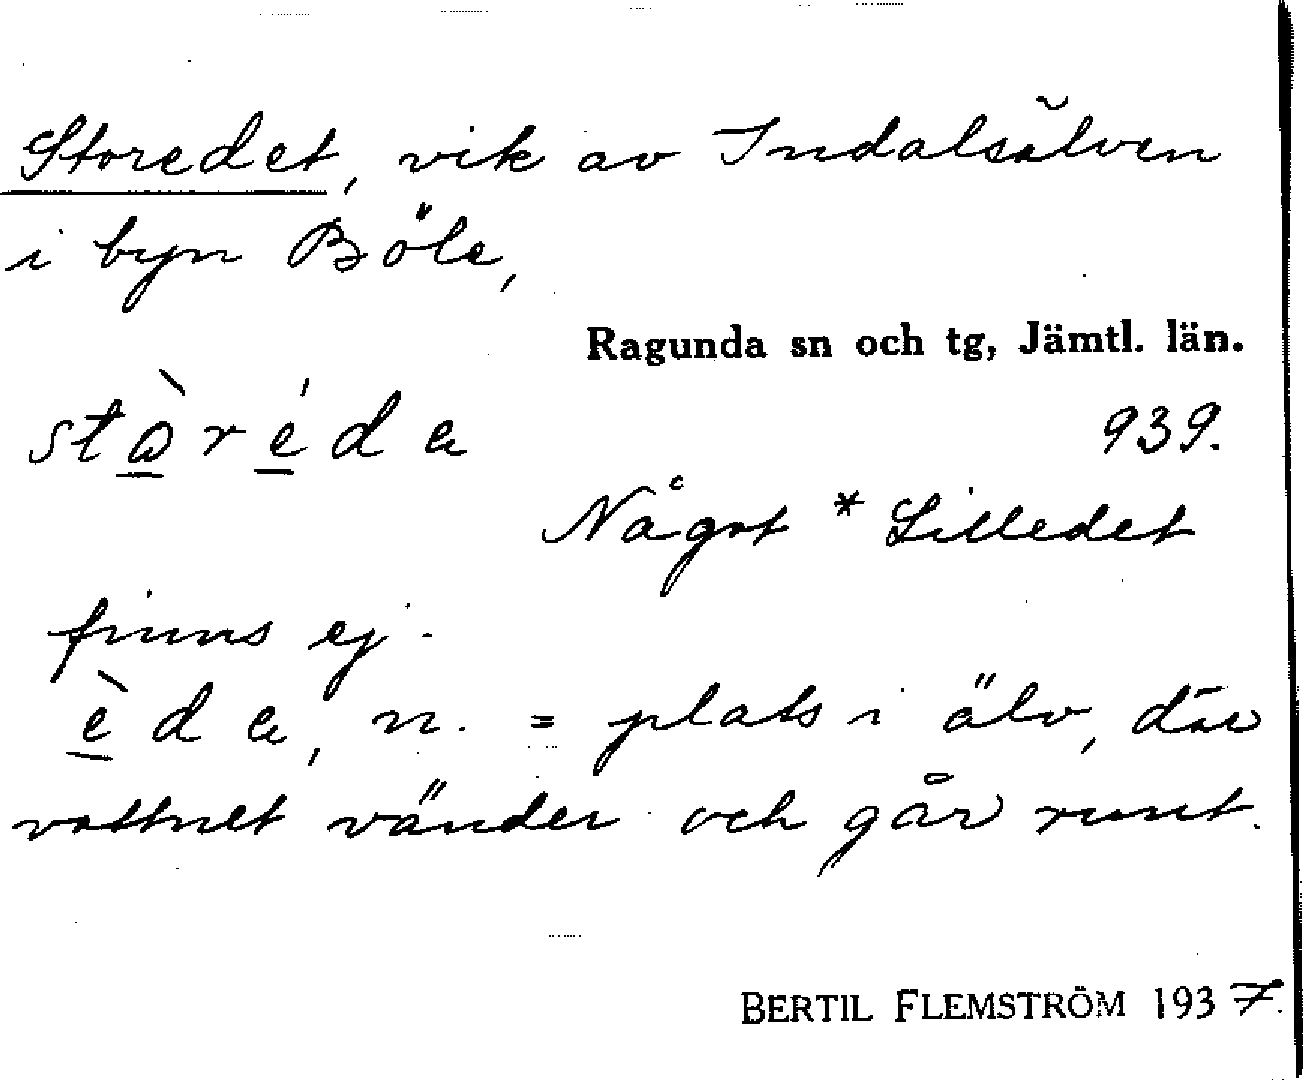 Storedet, vik av Indalsälven
i byn Böle,
Ragunda sn och tg, Jämtl. län.
stò̲ré̲da
939.
Något * Lilledet
finns ej.
è̲da, n. = plats i älv, där
vattnet vänder och går runt.
BERTIL FLEMSTRÖM 1937.